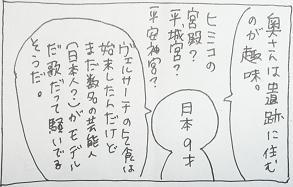 奥さんは史跡に住む
のが趣味。
ヒミコの
宮殿?
平城宮?
平安神宮?
日本 9才
ヴェルサーチの乞食は
始末したんだけど
まだ数名の芸能人
(日本人?)がモデル
だ歌だって騒いでる
そうだ。